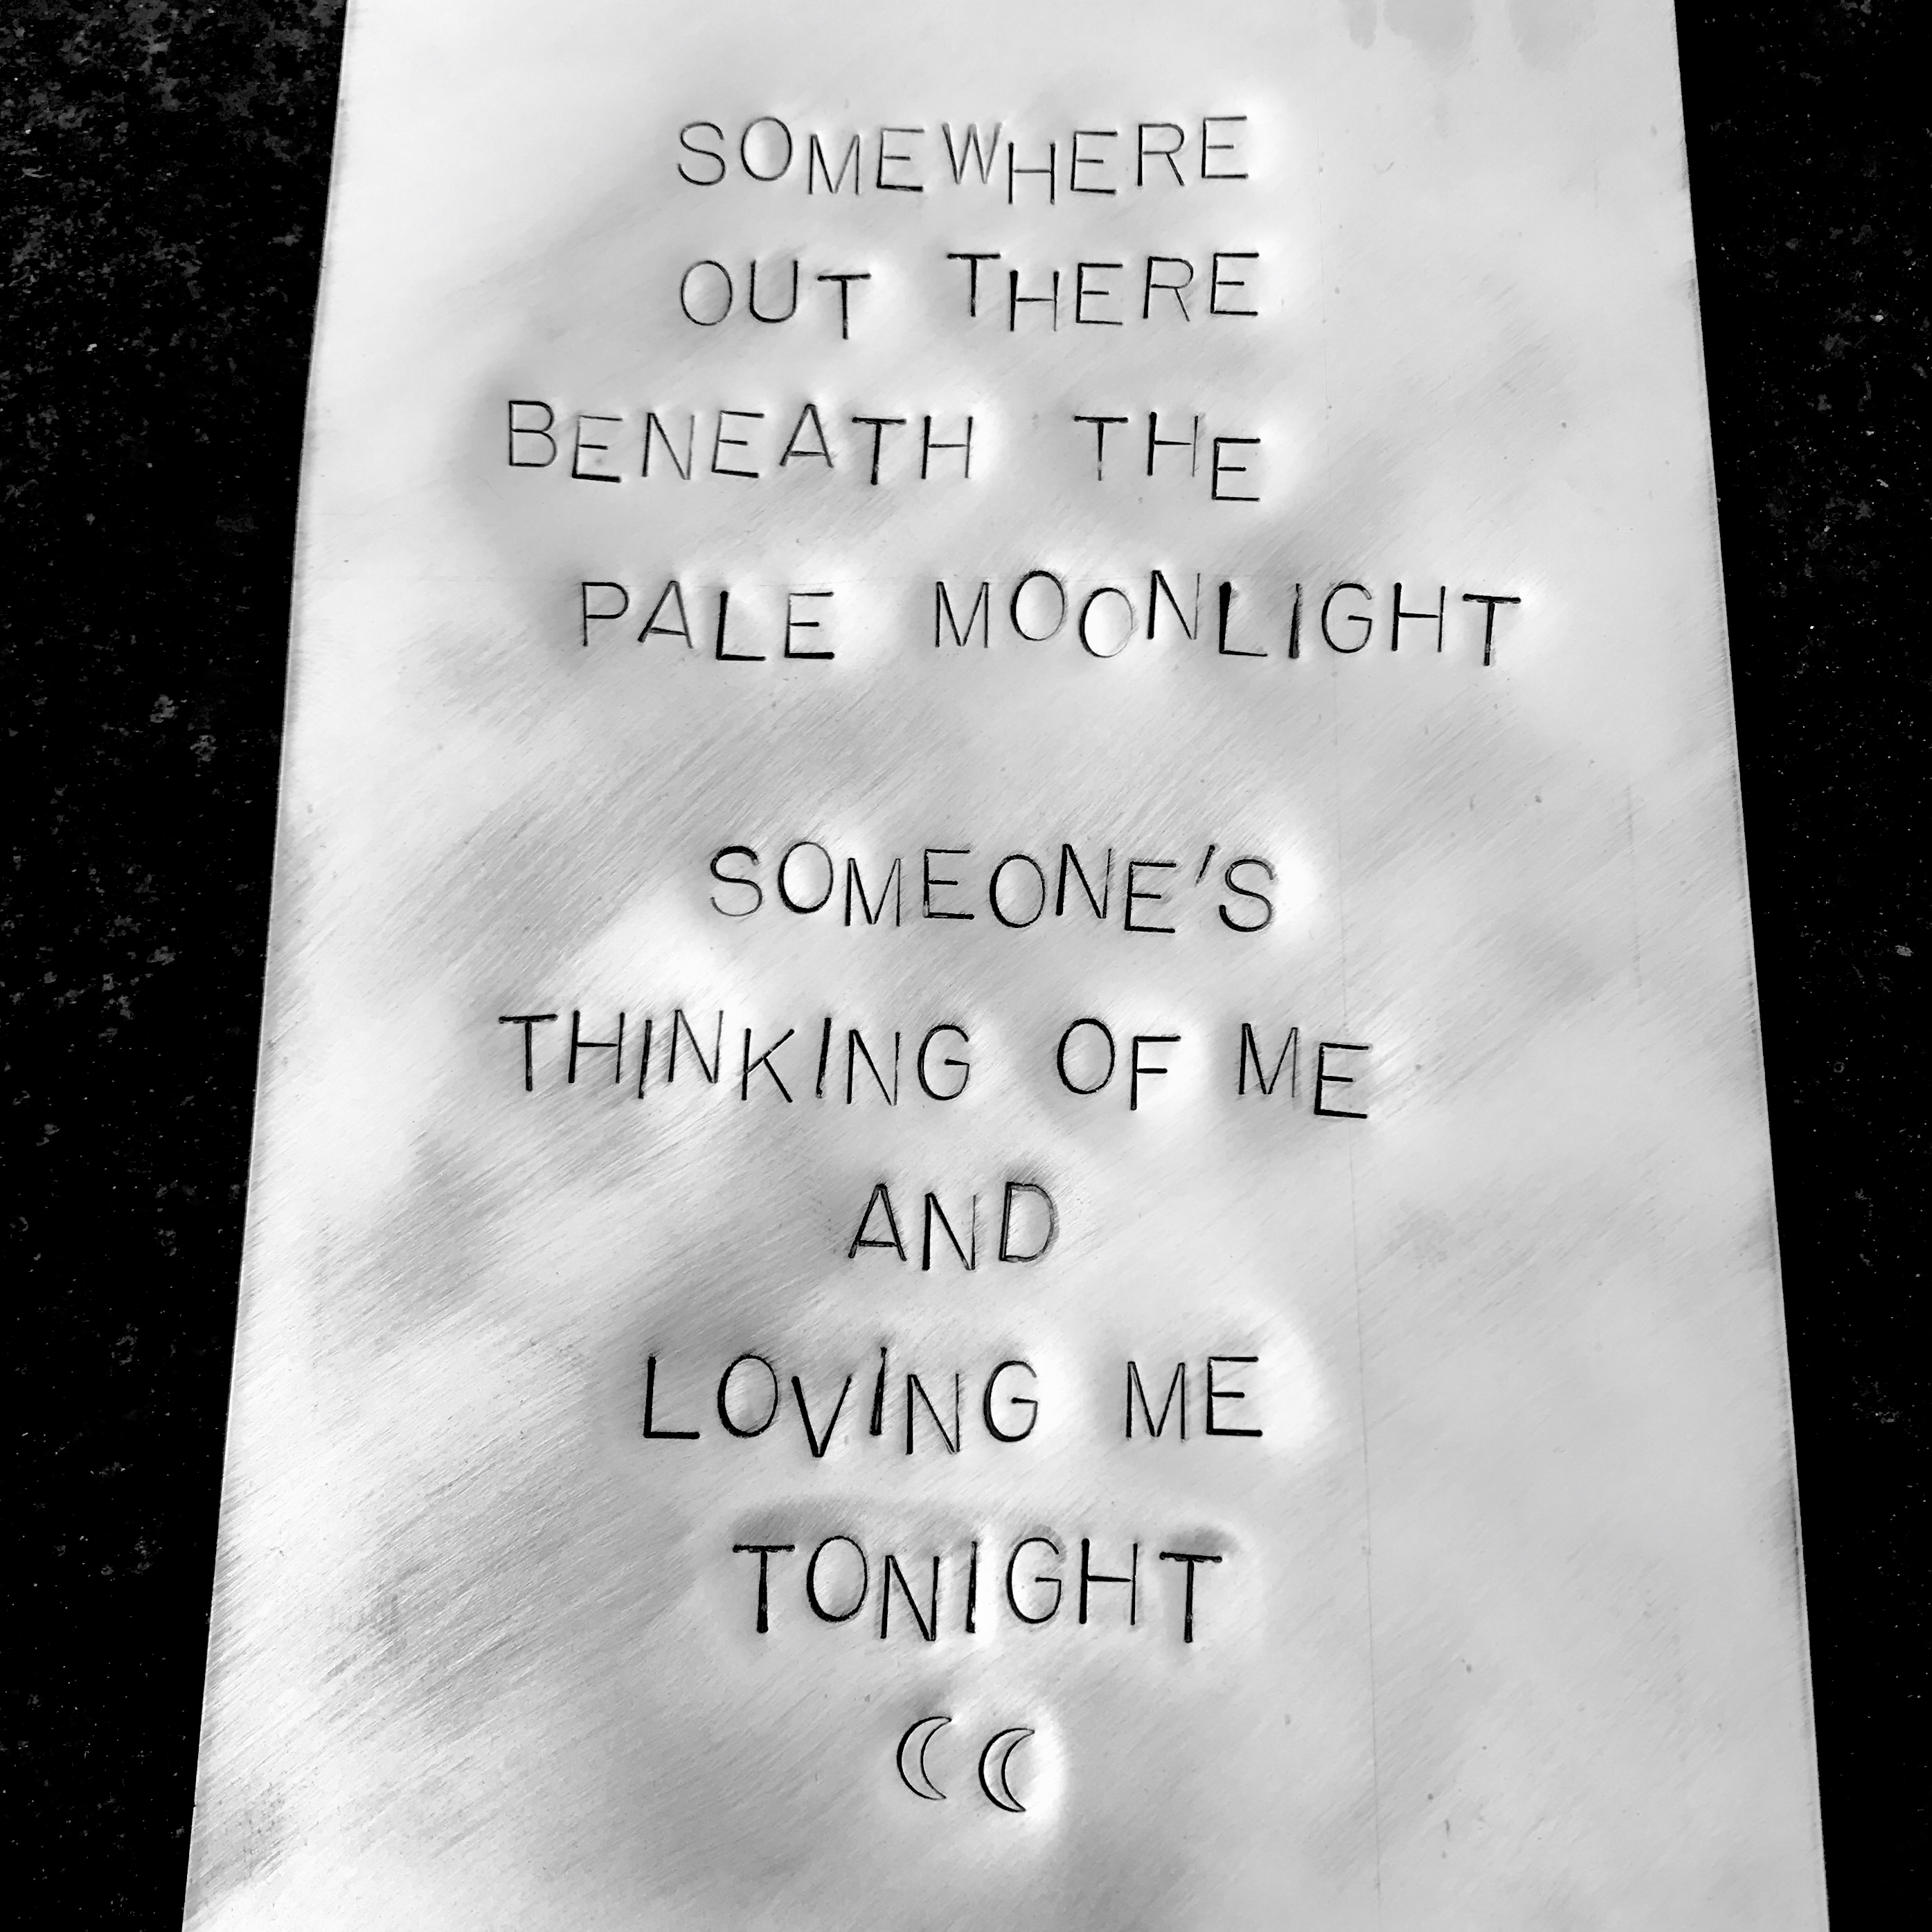 SOMEWHERE
OUT THERE
BENEATH THE
PALE MOONLIGHT
SOMEONE'S
THINKING OF ME
AND
LOVING ME
TONIGHT